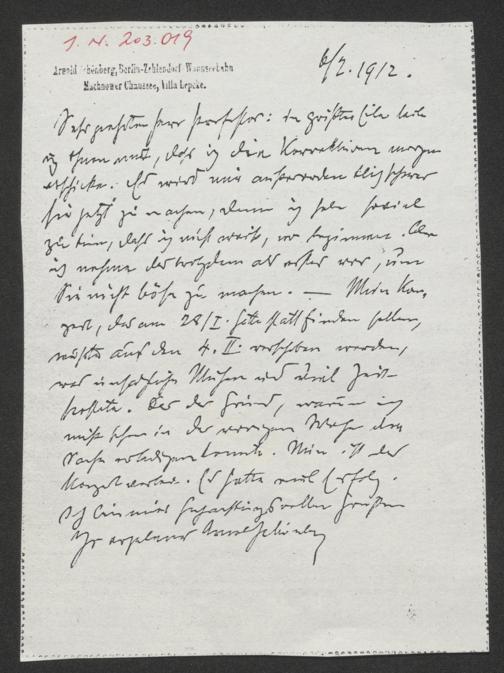 J. N. 203.019
Arnold Schönberg, Berlin-Zehlendorf Wannseebahn
Machnower Chaussee, Villa Lepcke.
6/2. 1912.
Sehr geehrter Herr Professor: in größter Eile teile
ich Ihnen mit, daß ich die Korrekturen morgen
abschicke. Es wird mir außerordentlich schwer
sie jetzt zu machen, denn ich habe soviel
zu tun, daß ich nicht weiß, wo beginnen. Aber
ich nehme das trotzdem als erstes vor, um
Sie nicht böse zu machen. — Mein Kon-
zert, das am 28/I. hätte stattfinden sollen,
mußte auf den 4. II. verschoben werden,
was unsägliche Mühen und viel Zeit
kostete. Das der Grund, warum ich
nicht schon in der vorigen Woche die
Sache erledigen konnte. Nun ist das
Konzert vorbei. Es hatte viel Erfolg.
Ich bin mit hochachtungsvollen Grüßen
Ihr ergebener Arnold Schönberg